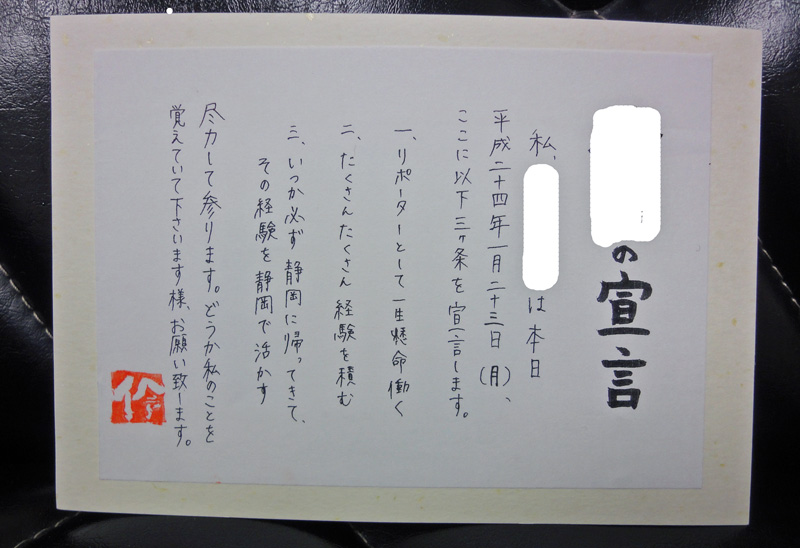 の宣言
私、
は本日
平成二十四年一月二十三日（月）、
ここに以下三ヶ条を宣言します。
一、リポーターとして一生懸命働く
二、たくさんたくさん経験を積む
三、いつか必ず静岡に帰ってきて、
その経験を静岡で活かす
尽力して参ります。どうか私のことを
覚えていて下さいます様、お願い致します。